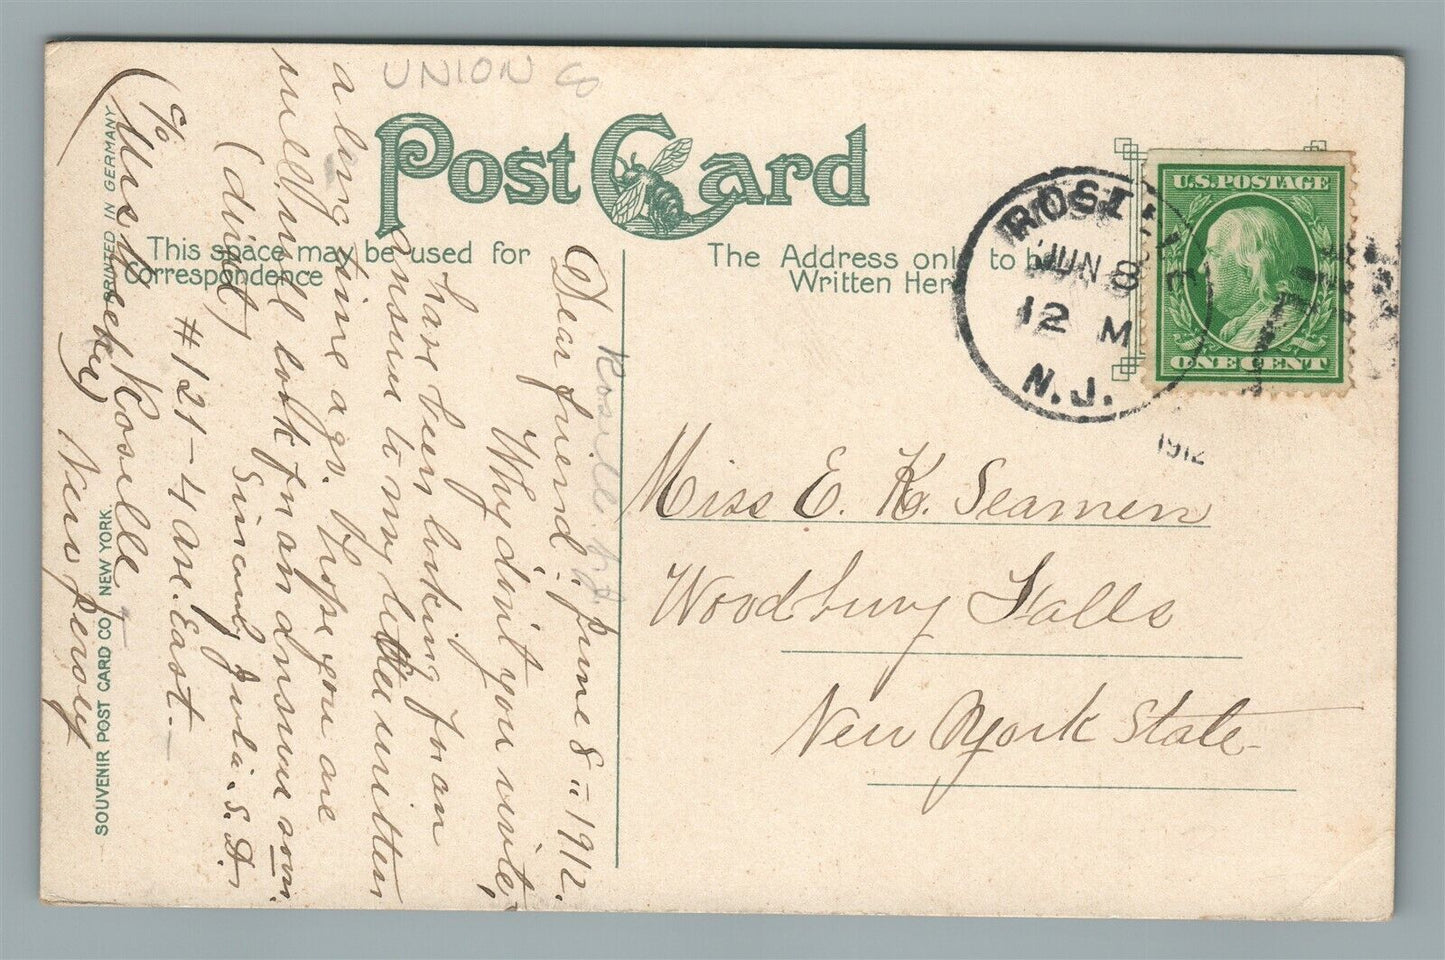 UNION Co
Post Card
This space may be used for
Correspondence
The Address only to be
Written Here
ROSELLE
JUN 8
12 M
N.J.
1912
U.S.POSTAGE
ONE CENT
Miss E. K. Seamen
Woodbury Falls
New York State
Roselle N.J.
June 8 :: 1912.
Dear friend :-
Why don't you write,
have been looking for an
answer to my letter written
a long time ago. Hope you are
well, will look for an answer soon.
Sincerely Julia S. D.
(direct)
#121-4 ave. East.
c/o Roselle
New Jersey
PRINTED IN GERMANY
SOUVENIR POST CARD CO. NEW YORK.